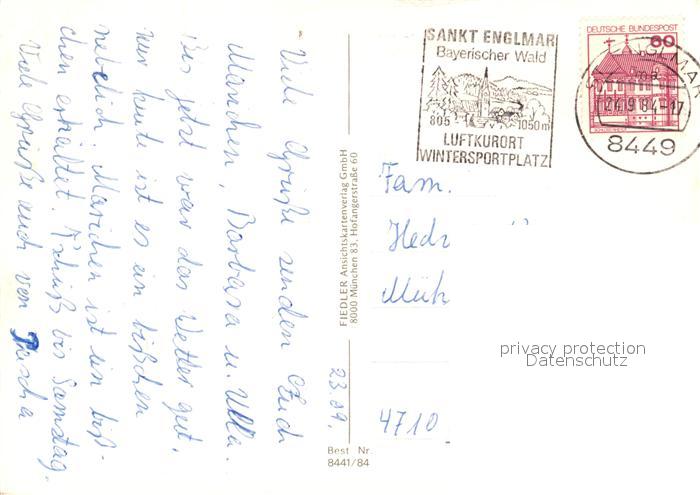 Viele Grüße senden Euch
Marichen, Barbara u. Ulla.
Bis jetzt war das Wetter gut,
nur heute ist es ein bißchen
nebelich. Marichen ist ein biß-
chen erkältet. Tschüß bis Samstag.
Viele Grüße auch von Pascha
23.09.
FIEDLER Ansichtskartenverlag GmbH
8000 München 83, Hofangerstraße 60
Best Nr.
8441/84
SANKT ENGLMAR
Bayerischer Wald
805 - 1050m
LUFTKURORT
WINTERSPORTPLATZ
DEUTSCHE BUNDESPOST
60
ST. ENGLMAR
24.9.84-17
8449
Fam.
Hedr
Müh
4710
privacy protection
Datenschutz